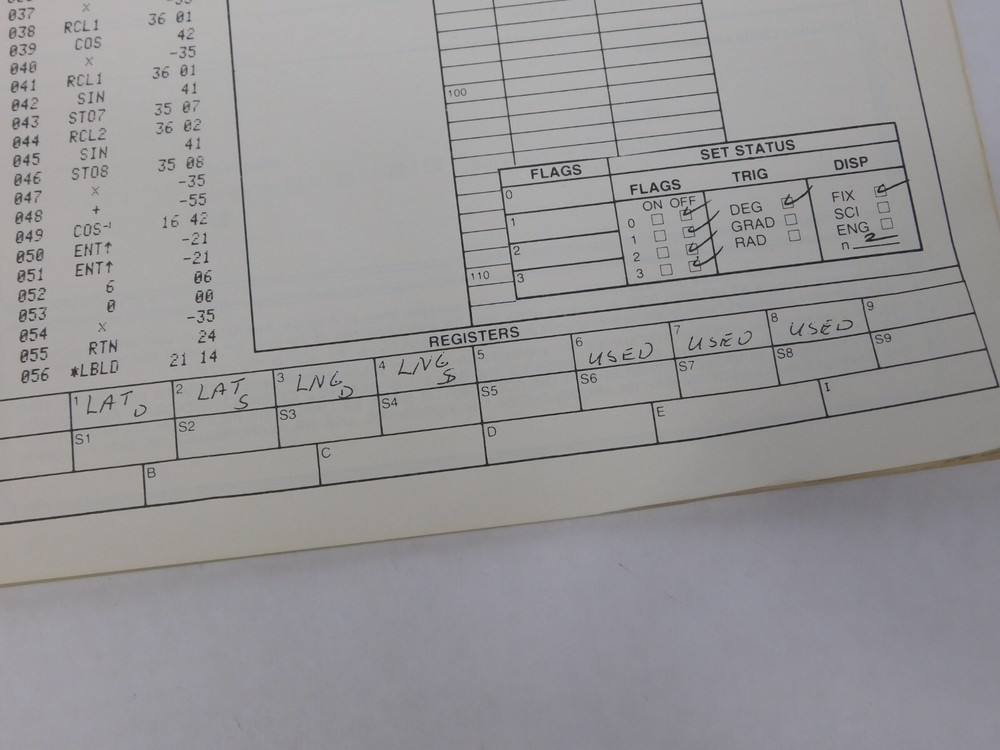 037 × -35
038 RCL1 36 01
039 COS 42
040 × -35
041 RCL1 36 01
042 SIN 41
043 STO7 35 07
044 RCL2 36 02
045 SIN 41
046 STO8 35 08
047 × -35
048 + -55
049 COS⁻¹ 16 42
050 ENT↑ -21
051 ENT↑ -21
052 6 06
053 0 00
054 × -35
055 RTN 24
056 *LBLD 21 14
100
110
FLAGS
0
1
2
3
SET STATUS
FLAGS TRIG DISP
ON OFF
0 DEG FIX
1 GRAD SCI
2 RAD ENG
3 n 2
REGISTERS
1 LAT D 2 LAT S 3 LNG D 4 LNG S 5 6 USED 7 USED 8 USED 9
S1 S2 S3 S4 S5 S6 S7 S8 S9
B C D E I